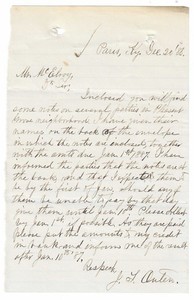 Paris, Ky, Dec 30
Mr.
Dr Sir,
Inclosed you will find
some notes on several parties in
neighborhood. I have given their
names on the back of the envelope
in which the notes are enclosed together
with the amts due Jan 1st 1887. I have
informed the parties that the notes are at
the bank and that I expect them to
be by the first of year should any of
them be unable to pay by this day
give them until Jan 10th. Please collect
by Jan 1st if possible. As they are paid
please put the amounts to my credit
in bank and inform me of the result
after Jan 10th '87.
Respect
J. T.